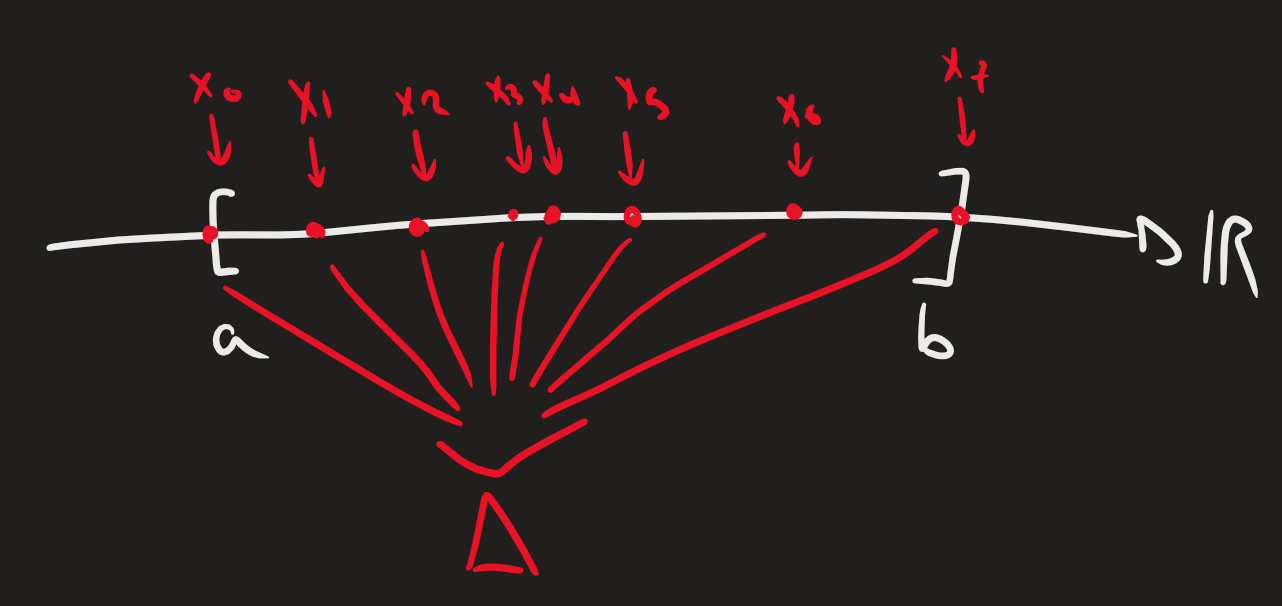 x₀ x₁ x₂ x₃ x₄ x₅ x₆ x₇
[ ] ℝ
a b
Δ